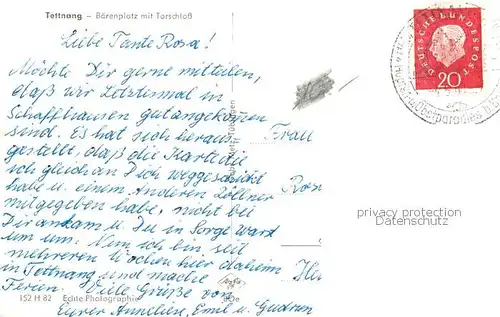 Tettnang – Bärenplatz mit Torschloß
Liebe Tante Rosa!
Möchte Dir gerne mitteilen,
daß wir letztesmal in
Schaffhausen gut angekommen
sind. Es hat sich heraus
gestellt, daß die Karte die
ich gleich an Dich weggeschickt
habe u. einem Anderen Zöllner
mitgegeben habe, nicht bei
Dir ankam u. Du in Sorge warst
um uns. Nun ich bin seit
mehreren Wochen hier daheim
in Tettnang und mache
Ferien. Viele Grüße von
Eurer Annelies, Emil u. Gudrun
Frau
DEUTSCHE BUNDESPOST
20
privacy protection
Datenschutz
152 H 82 Echte Photographie